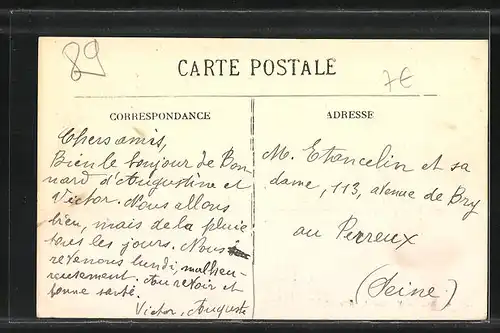 89
7€
CARTE POSTALE
CORRESPONDANCE
ADRESSE
Chers amis,
Bien le bonjour de Bon
nard d'Augustine et
Victor. Nous allons
bien, mais de la pluie
tous les jours. Nous
revenons lundi, malheu-
reusement. Au revoir et
bonne santé.
Victor, Auguste
M. Etancelin et sa
dame, 113, avenue de Bry
au Perreux
(Seine)